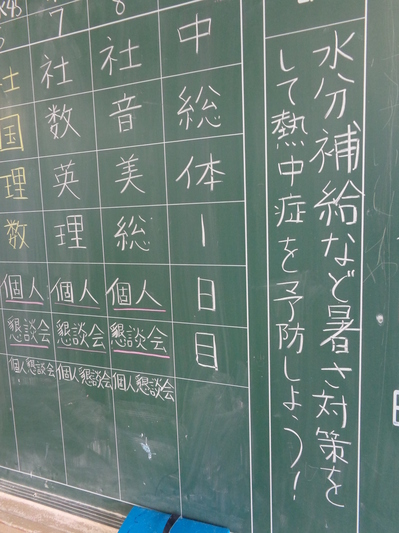 水分補給など暑さ対策を
して熱中症を予防しよう!
中総体1日目
8
社
音
美
総
個人
懇談会
個人懇談会
7
社
数
英
理
個人
懇談会
個人懇談会
国
理
数
個人
懇談会
個人懇談会